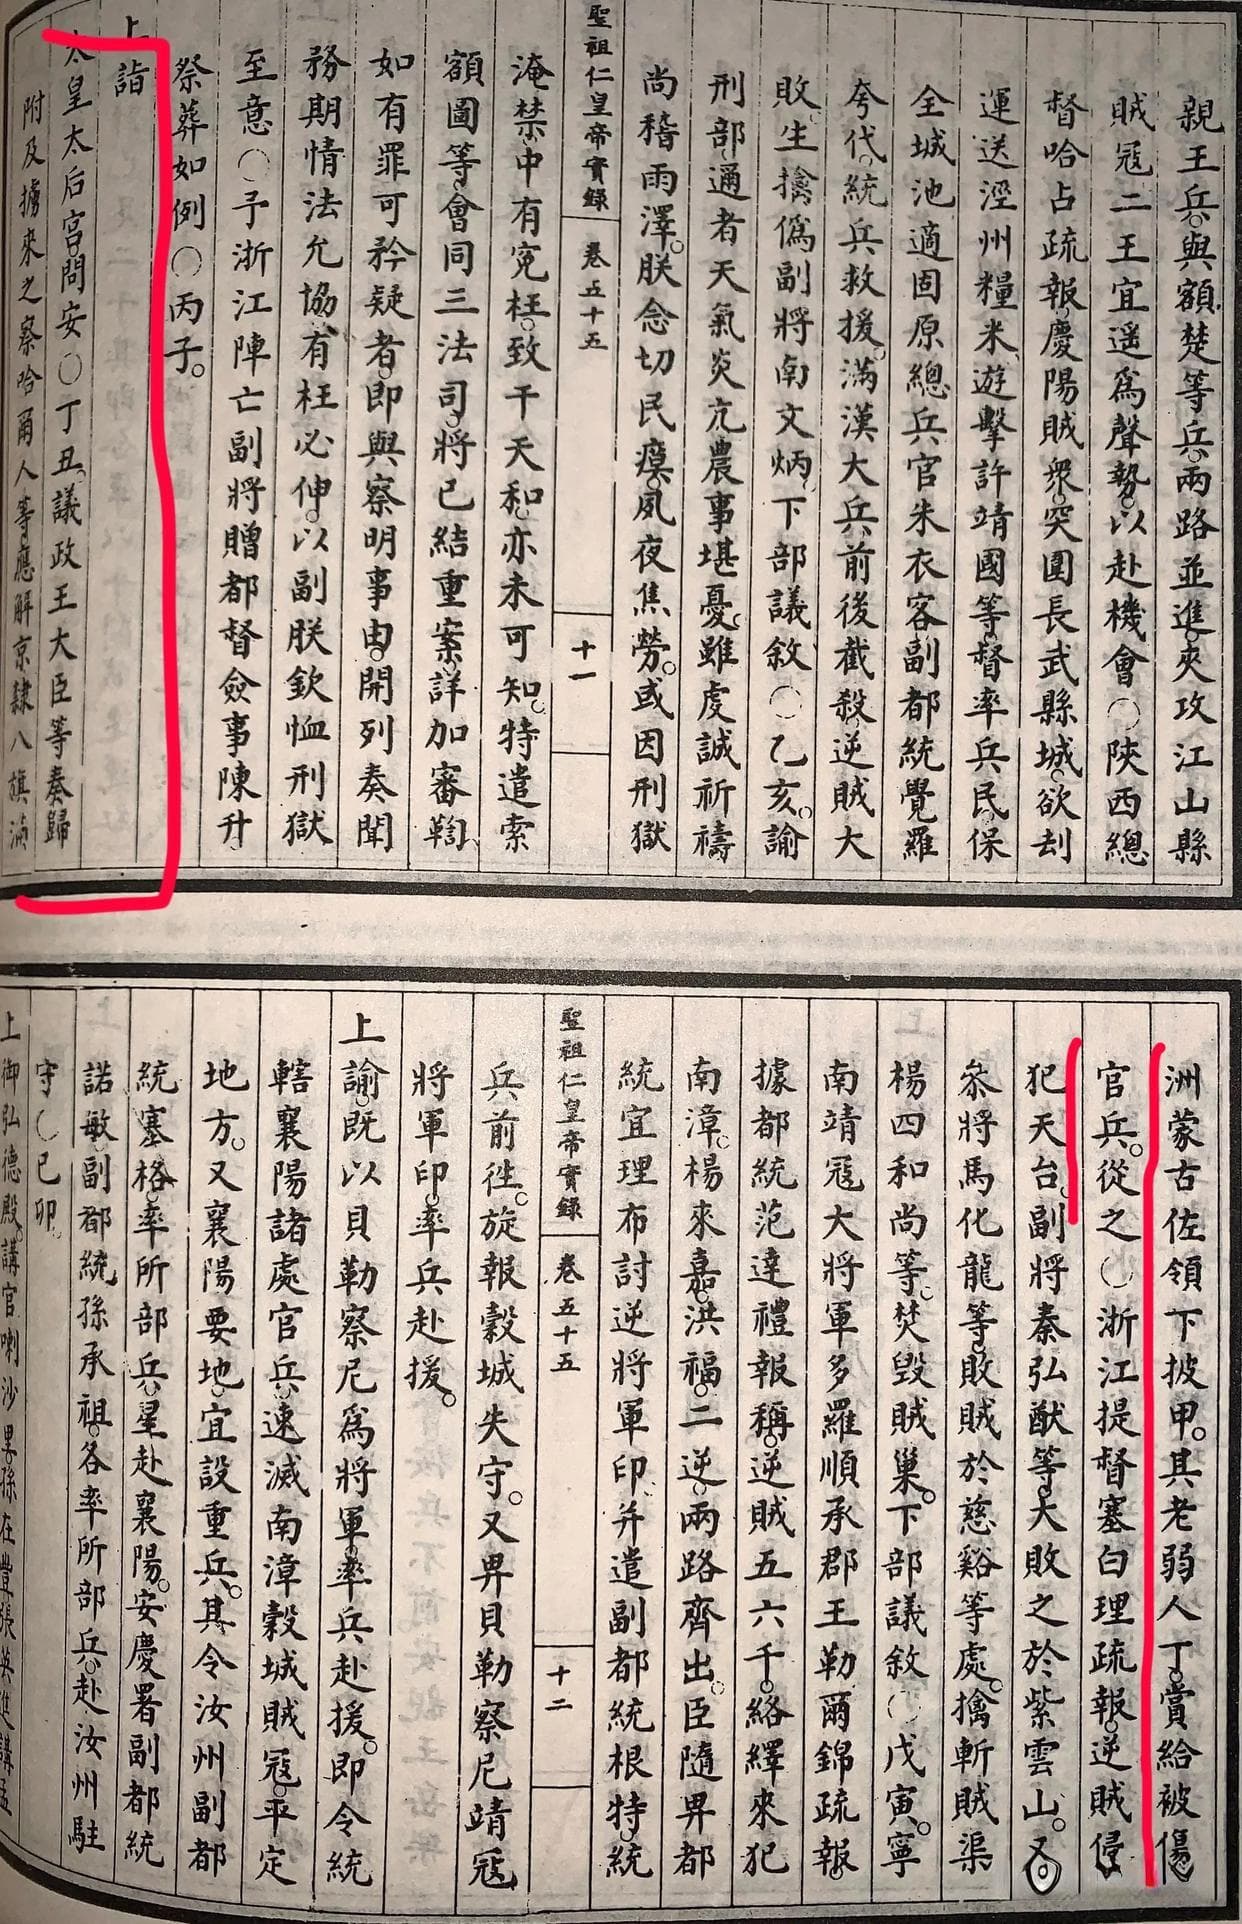 親王兵。與額楚等兵。兩路並進。夾攻江山縣
賊寇。二王宜遥爲聲勢。以赴機會○陝西總
督哈占疏報。慶陽賊衆。突圍長武縣城。欲刦
運送涇州糧米。遊擊許靖國等。督率兵民。保
全城池。適固原總兵官朱衣客。副都統覺羅
夸代。統兵救援。滿漢大兵。前後截殺。逆賊大
敗。生擒僞副將南文炳。下部議敘○乙亥。諭
刑部。邇者天氣炎亢。農事堪憂。雖虔誠祈禱。
尚稽雨澤。朕念切民瘼。夙夜焦勞。或因刑獄
聖祖仁皇帝實錄 卷五十五 十一
淹禁。中有寃枉。致干天和。亦未可知。特遣索
額圖等。會同三法司。將已結重案。詳加審鞫
如有罪可矜疑者。即與察明事由。開列奏聞
務期情法允協。有枉必伸。以副朕欽恤刑獄
至意○予浙江陣亡副將贈都督僉事陳升
祭葬如例○丙子。
上詣
太皇太后宮問安○丁丑。議政王大臣等奏。歸
附及擄來之察哈爾人等。應解京。隸八旗滿
洲蒙古佐領下披甲。其老弱人丁。賞給被傷
官兵。從之○浙江提督塞白理疏報。逆賊侵
犯天台。副將秦弘猷等。大敗之於紫雲山。又
參將馬化龍等。敗賊於慈谿等處。擒斬賊渠
楊四和尚等。焚毀賊巢。下部議敘○戊寅。寧
南靖寇大將軍多羅順承郡王勒爾錦疏報。
據都統范達禮報稱。逆賊五六千。絡繹來犯
南漳。楊來嘉。洪福。二逆。兩路齊出。臣隨畀都
統宜理布討逆將軍印。并遣副都統根特。統
聖祖仁皇帝實錄 卷五十五 十二
兵前往。旋報穀城失守。又畀貝勒察尼靖寇
將軍印。率兵赴援。
上諭。既以貝勒察尼爲將軍。率兵赴援。即令統
轄襄陽諸處官兵。速滅南漳穀城賊寇。平定
地方。又襄陽要地。宜設重兵。其令汝州副都
統塞格。率所部兵。星赴襄陽。安慶署副都統
諾敏。副都統孫承祖。各率所部兵。赴汝州駐
守○己卯。
上御弘德殿。講官喇沙里。孫在豐。張英。進講孟